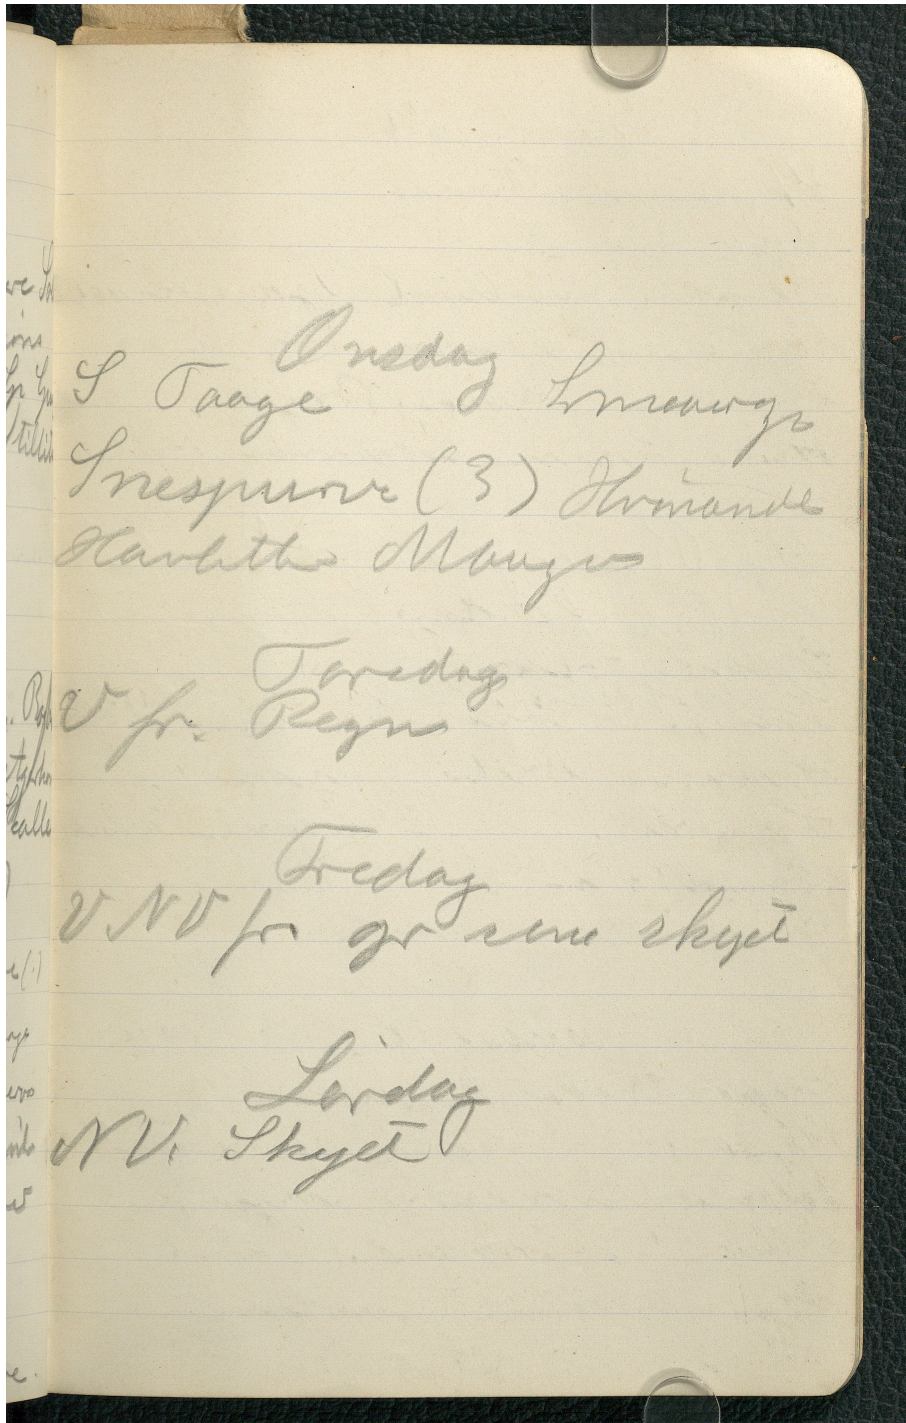 Onsdag
S Taage
Snespurve (3) Hvinande
Havlitte Maage
Torsdag
V fr. Regn
Fredag
V.N V fr og sene skyet
Lørdag
N V. Skyet